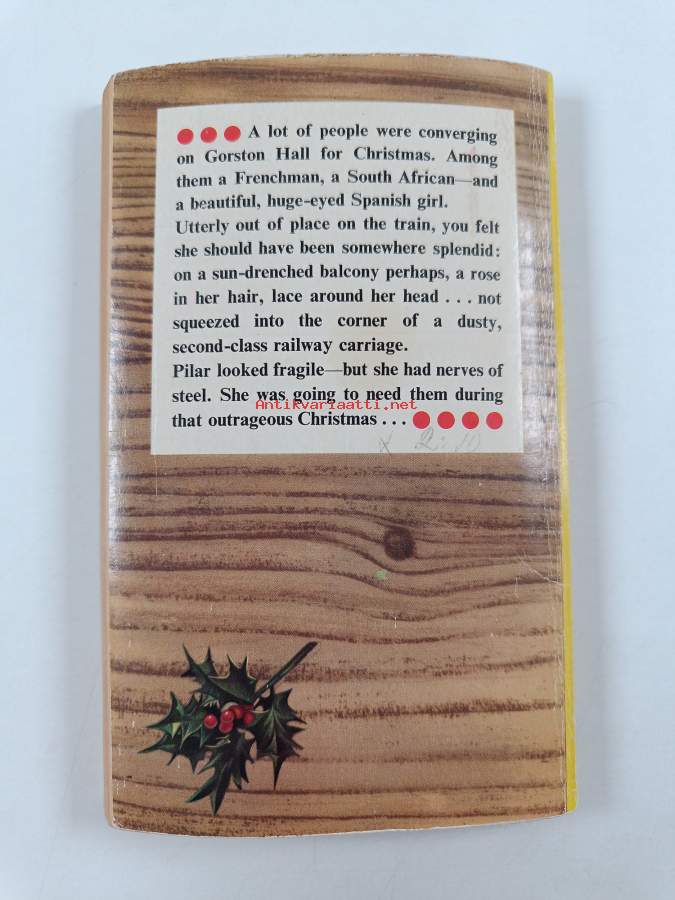 ●●● A lot of people were converging
on Gorston Hall for Christmas. Among
them a Frenchman, a South African—and
a beautiful, huge-eyed Spanish girl.
Utterly out of place on the train, you felt
she should have been somewhere splendid:
on a sun-drenched balcony perhaps, a rose
in her hair, lace around her head . . . not
squeezed into the corner of a dusty,
second-class railway carriage.
Pilar looked fragile—but she had nerves of
steel. She was going to need them during
Antikvariaatti.net
that outrageous Christmas . . . ●●●●
x 2:10